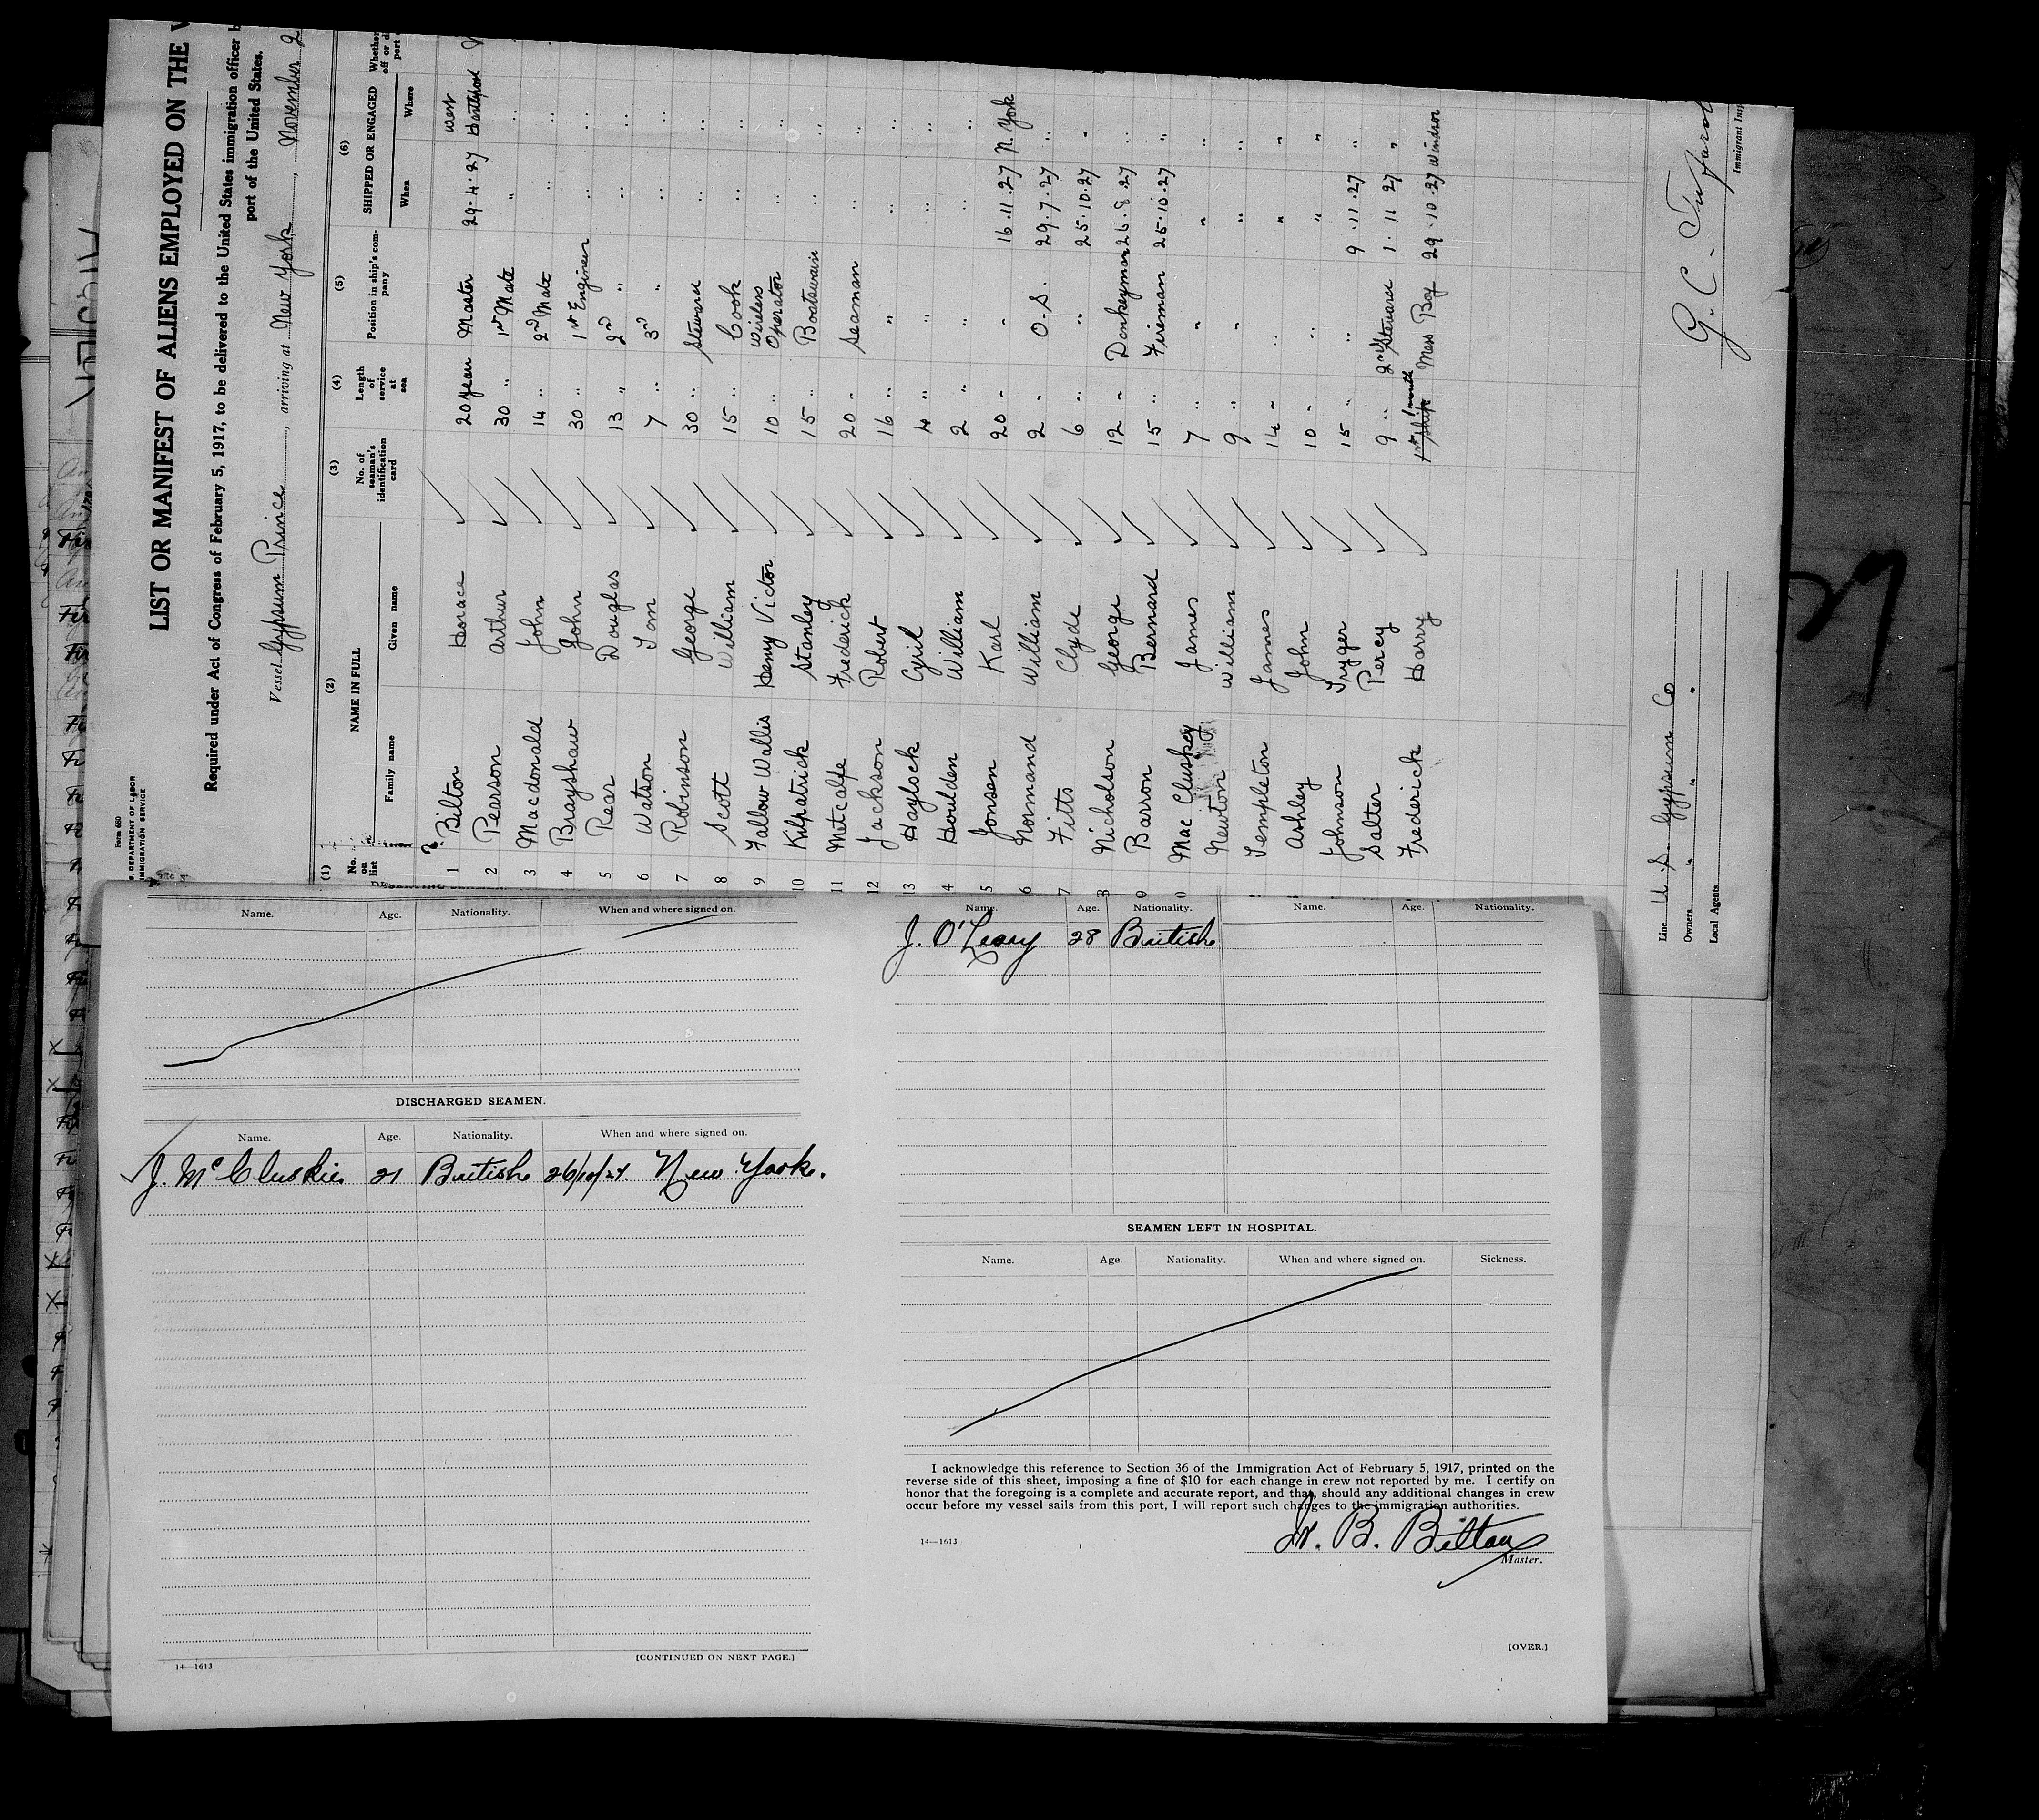 Form 680
U.S. DEPARTMENT OF LABOR
IMMIGRATION SERVICE
LIST OR MANIFEST OF ALIENS EMPLOYED ON THE
Required under Act of Congress of February 5, 1917, to be delivered to the United States immigration officer
port of the United States.
Vessel Gypsum Prince, arriving at New York, November 2
(1) (2) (3) (4) (5) (6)
No. on list NAME IN FULL No. of seaman's identification card Length of service at sea Position in ship's company SHIPPED OR ENGAGED Whether
Family name Given name When Where
1 Bilton Horace 20 years Master 29.4.27 West Hartlepool
2 Pearson Arthur 30 " 1st Mate " "
3 Macdonald John 14 " 2nd Mate " "
4 Brayshaw John 30 " 1st Engineer " "
5 Rear Douglas 13 " 2nd " " "
6 Watson Tom 7 " 3rd " " "
7 Robinson George 30 " Steward " "
8 Scott William 15 " Cook " "
9 Fallow Wallis Henry Victor 10 " Wireless Operator " "
10 Kilpatrick Stanley 15 " Boatswain " "
11 Metcalfe Frederick 20 " Seaman " "
12 Jackson Robert 16 " " " "
13 Haylock Cyril 4 " " " "
4 Houlden William 2 " " " "
5 Jonsen Karl 20 " " 16.11.27 N. York
6 Normand William 2 " O.S. 29.7.27 "
7 Fitts Clyde 6 " " 25.10.27 "
8 Nicholson George 12 " Donkeyman 26.8.27 "
9 Barron Bernard 15 " Fireman 25.10.27 "
0 Mac Cluskey James 7 " " " "
Newton William 9 " " " "
Templeton James 14 " " " "
Ashley John 10 " " " "
Johnson Tryger 15 " " 9.11.27 "
Salter Percy 9 " 2nd Steward 1.11.27 "
Frederick Harry 1st Ship 1 month Mess Boy 29.10.27 Windsor
Line U.S. Gypsum Co
Owners " " "
Local Agents
G. C.
Immigrant Insp
Name. Age. Nationality. When and where signed on.
DISCHARGED SEAMEN.
Name. Age. Nationality. When and where signed on.
J. McCluskie 21 British 26/10/27 New York.
[CONTINUED ON NEXT PAGE.]
14—1613
Name. Age. Nationality. Name. Age. Nationality.
J. O'Leary 28 British
SEAMEN LEFT IN HOSPITAL.
Name. Age. Nationality. When and where signed on. Sickness.
I acknowledge this reference to Section 36 of the Immigration Act of February 5, 1917, printed on the
reverse side of this sheet, imposing a fine of $10 for each change in crew not reported by me. I certify on
honor that the foregoing is a complete and accurate report, and that, should any additional changes in crew
occur before my vessel sails from this port, I will report such changes to the immigration authorities.
14—1613
H. B. Bilton
Master.
[OVER.]